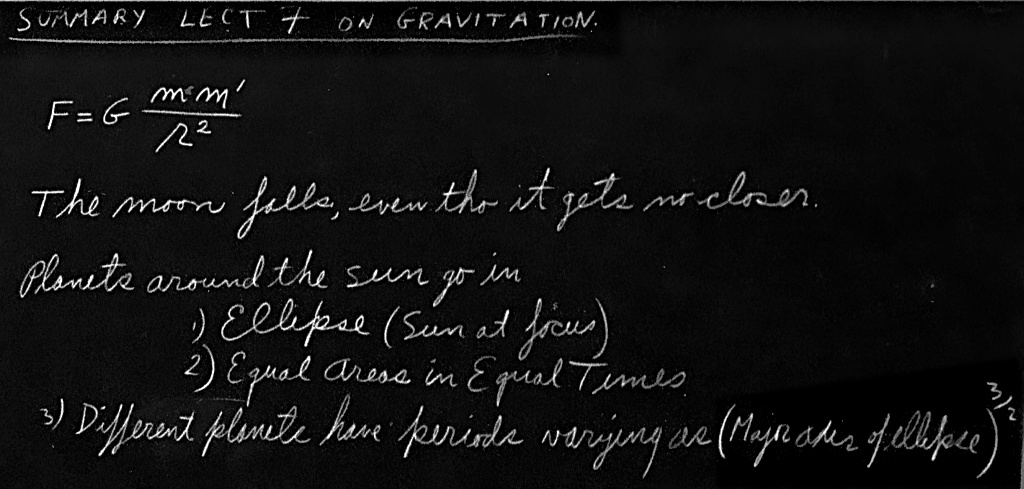 SUMMARY LECT 7 ON GRAVITATION.
F = G m m' / r²
The moon falls, even tho it gets no closer.
Planets around the sun go in
1) Ellipse (Sun at focus)
2) Equal Areas in Equal Times
3) Different planets have periods varying as (Major axis of ellipse)^3/2